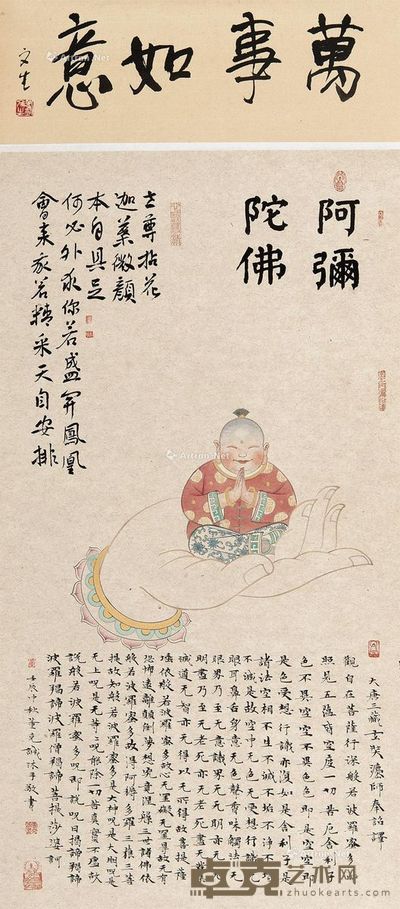 萬事如意
文生
阿彌
陀佛
世尊拈花
迦葉微顏
本自具足
何必外求你若盛开鳳凰
會来你若精采天自安排
大唐三藏玄奘法師奉詔譯
觀自在菩薩行深般若波羅蜜多時
照見五蘊皆空度一切苦厄舍利子
色不異空空不異色色即是空空即
是色受想行識亦復如是舍利子是
諸法空相不生不滅不垢不淨不增
不減是故空中无色无受想行識无
眼耳鼻舌身意无色聲香味觸法无
眼界乃至无意識界无无明亦无无
明盡乃至无老死亦无老死盡无苦集
滅道无智亦无得以无所得故菩提薩
埵依般若波羅蜜多故心无罣礙无罣礙故无有
恐怖遠離顛倒夢想究竟涅槃三世諸佛依
般若波羅蜜多故得阿耨多羅三藐三菩
提故知般若波羅蜜多是大神咒是大明咒是
无上咒是无等等咒能除一切苦真實不虛故
說般若波羅蜜多咒即說咒曰揭諦揭諦
波羅揭諦波羅僧揭諦菩提莎婆訶
壬辰仲秋董克誠沐手敬書
卓克艺术网
zhuokearts.com